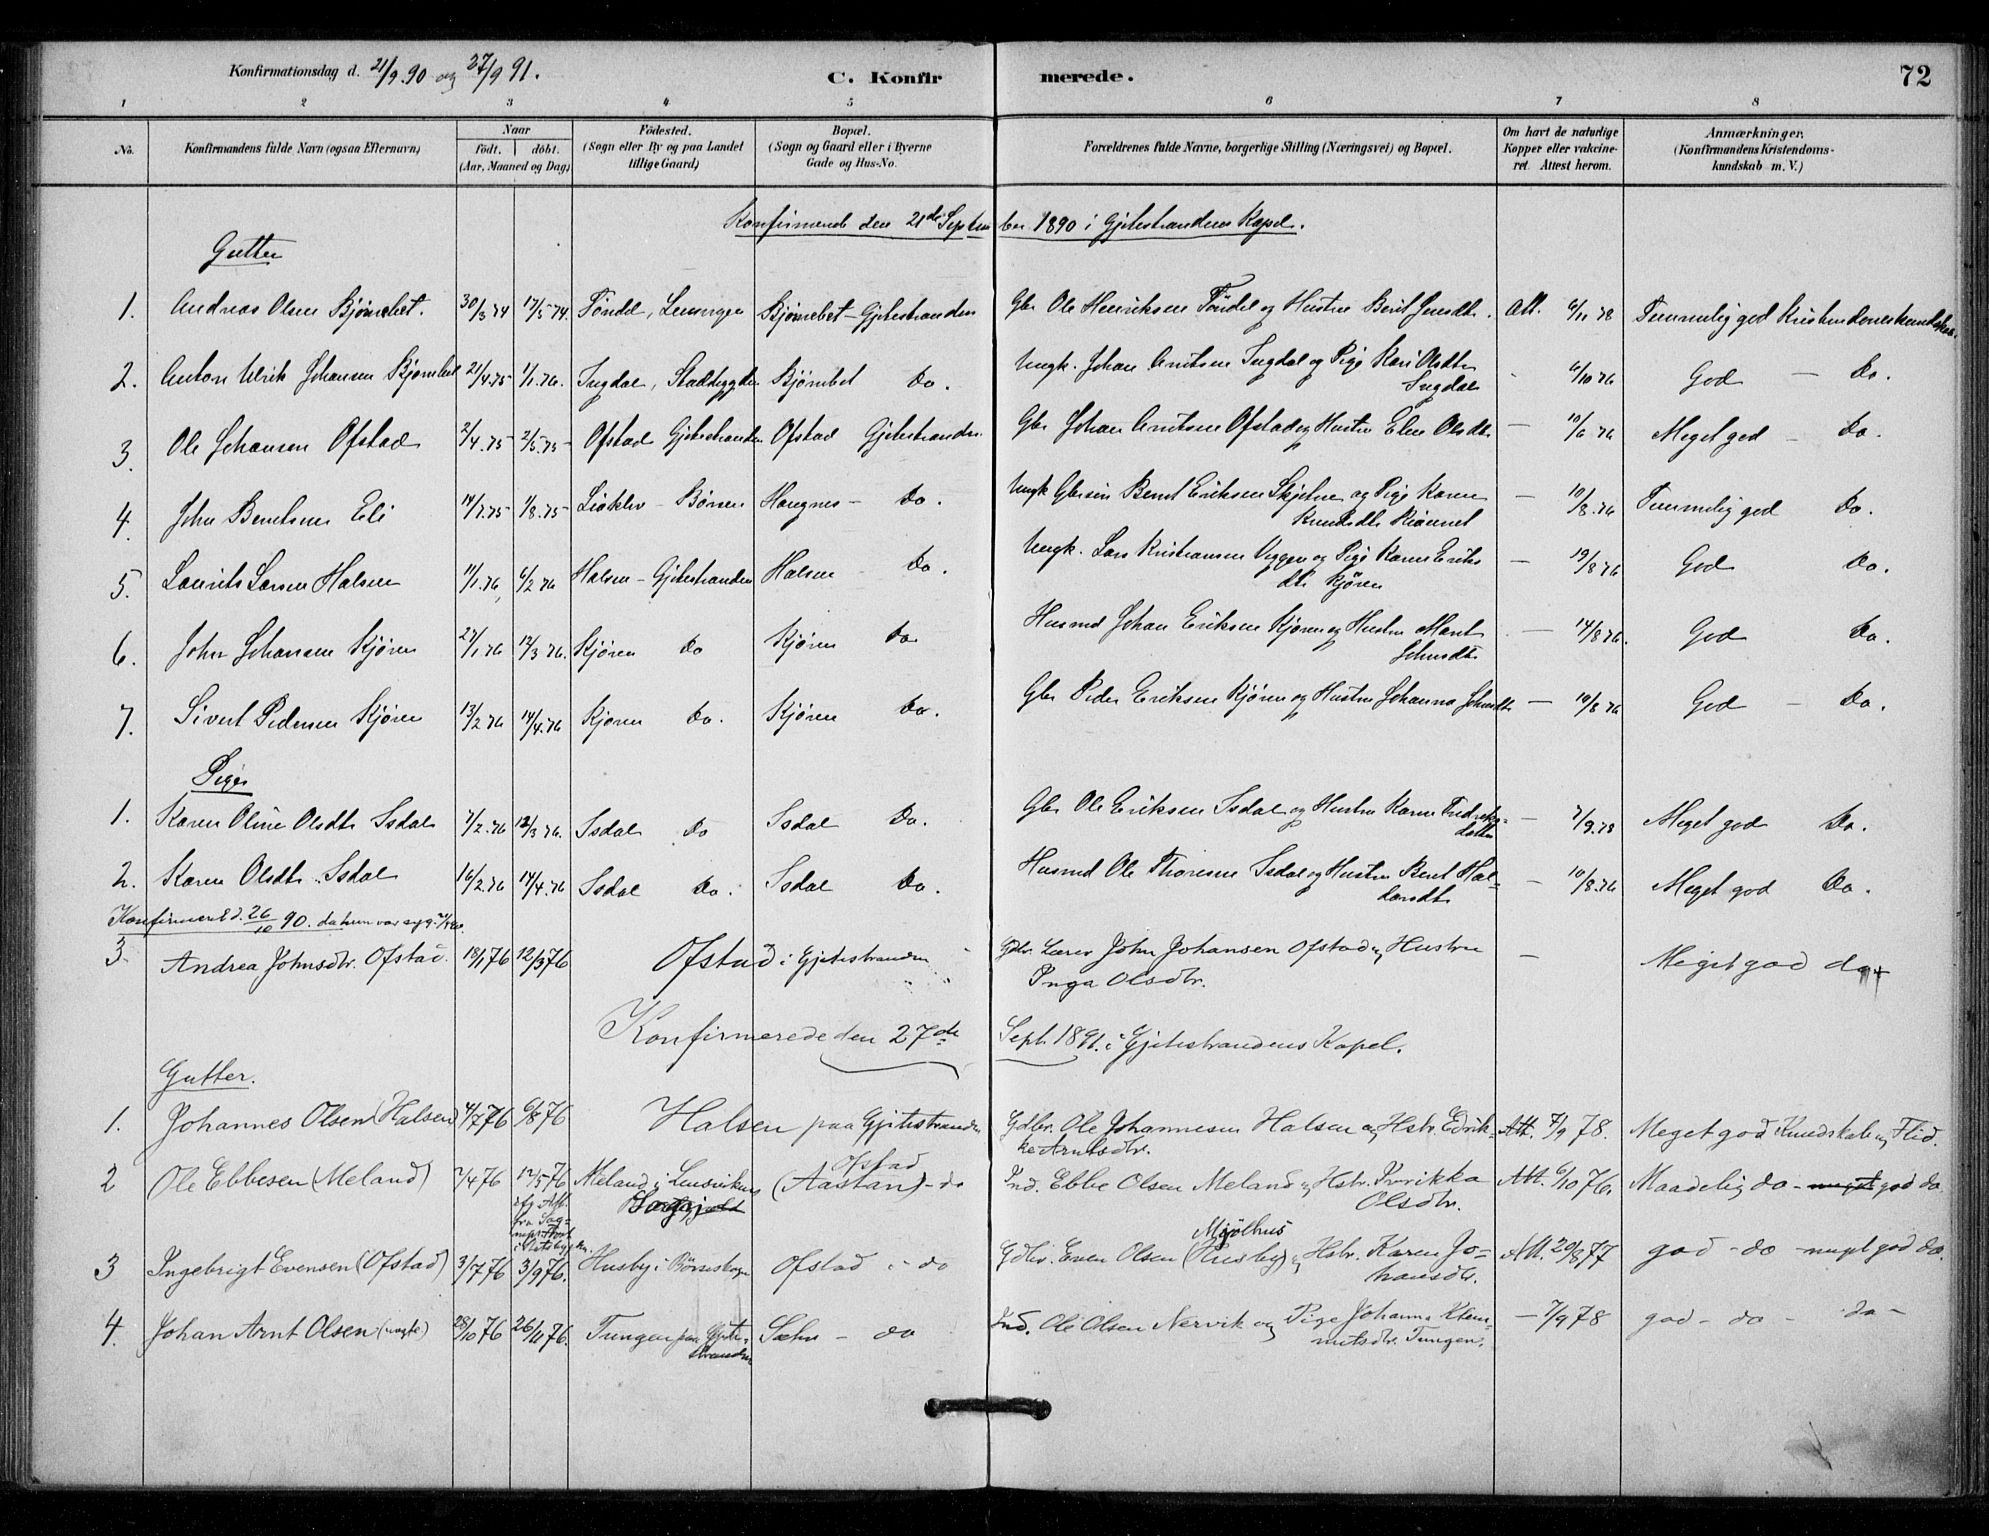 Konfirmationsdag d. 21/9.90 og 27/9 91.
C. Konfir merede. 72
1 2 3 4 5 6 7 8
No. Konfirmandens fulde Navn (ogsaa Efternavn) Naar födt. döbt. (Aar, Maaned og Dag) Födested. (Sogn eller By og paa Landet tillige Gaard) Bopæl. (Sogn og Gaard eller i Byerne Gade og Hus-No. Forældrenes fulde Navne, borgerlige Stilling (Næringsvei) og Bopæl. Om havt de naturlige Kopper eller vakcineret. Attest herom. Anmærkninger. (Konfirmandens Kristendomskundskab m. V.)
Konfirmerede den 21de September 1890 i Gjetestrandens Kapel.
Gutter
1. Andreas Olsen Bjørnebet. 30/3 74 17/5 74. Tøndel, Lensvigen Bjørnebet - Gjetestranden Gbr Ole Henriksen Töndel og Hustru Berit Jensdtr. Att. 6/11 78 Temmelig god Kristendomskundskab.
2. Anton Ulrik Johansen Bjørnbet 21/4.75 1/1.76. Ingdal, Stadsbygden Bjørnebet Do. Ungk. Johan Arntsen Ingdal og Pige Kari Olsdtr
Ingdal 6/10 76 God - Do.
3. Ole Johansen Ofstad 2/4.75 2/5.75 Ofstad Gjetestranden Ofstad Gjetestranden Gbr Johan Arntsen Ofstad og Hustru Elen Olsdtr - 10/6 76 Meget god - Do.
4. John Berntsen Eli 14/7.75 1/8.75 Børsen - Do. Ungk Gbrsøn Bernt Eriksen Skjetne og Pige Karen
Knudsdtr - 10/8.76 Temmelig god Do.
5. Laurits Larsen Halsen 11/1.76 6/2 76 Halsen - Gjetestranden Halsen - Do. Ungk. Lars Kristiansen Viggen og Pige Karen Eriks
dtr Kjören - 19/8 76 God Do.
6. John Johansen Kjøren 27/1 76 12/3 76. Kjøren Do Kjøren Do Husmd Johan Eriksen Kjøren og Hustru Marit
Johnsdtr - 14/8 76. God Do.
7. Sivert Pedersen Kjøren 13/2 76 14/4.76 Kjøren Do. Kjøren Do. Gbr Peder Eriksen Kjøren og Hustru Johanna Johnsdtr - 10/8 76 God - Do.
Piger
1. Karen Oline Olsdtr Isdal 7/2.76 12/3 76. Isdal Do Isdal Do. Gbr Ole Eriksen Isdal og Hustru Karen Fredriks-
datter - 7/9.78 Meget god Do.
2. Karen Olsdtr. Isdal 16/2.76 14/4.76 Isdal Do. Isdal Do. Husmd Ole Thoresen Isdal og Hustru Berit Hal-
dorsdtr - 10/8.76 Meget god Do.
Konfirmeret d. 26/10 90. da hun var syg 21/9 90
3 Andrea Johnsdtr. Ofstad. 18/1 76 12/3 76 Ofstad i Gjetestranden Gdbr. Lærer John Johansen Ofstad og Hustru
Inga Olsdtr. - Meget god do
Konfirmerede den 27de Sept. 1891. i Gjetestrandens Kapel.
Gutter.
1. Johannes Olsen (Halsen) 4/7 76 6/8 76 Halsen paa Gjetestranden Gdbr. Ole Johannesen Halsen og Hstr. Edrik-
ke Arntsdtr. Att. 7/9 78. Meget god Kundskab og Flid.
2 Ole Ebbesen (Meland) 7/4 76 17/5 76 Meland i Lensviken (Aastan) - do Ofstad Ind. Ebbe Olsen Meland og Hstr.
Olsdtr. Att. 6/10 76. Maadelig do - meget god do.
3 Ingebrigt Evensen (Ofstad) 3/7 76 3/9 76. Husby i Børseskogn Ofstad - do Gdbr. Even Olsen (Husby) Mjölhus og Hstr. Karen Jo-
hansdtr. Att. 20/8 77 god - do - meget god do.
4. Johan Arnt Olsen (uægte) 28/10 76 26/11 76. Tungen paa Gjete-
stranden Sæhn - do Ind. Ole Olsen Nervik og Pige Johanna Klem-
metsdtr. Tungen. - 7/9 78 god - do - do -